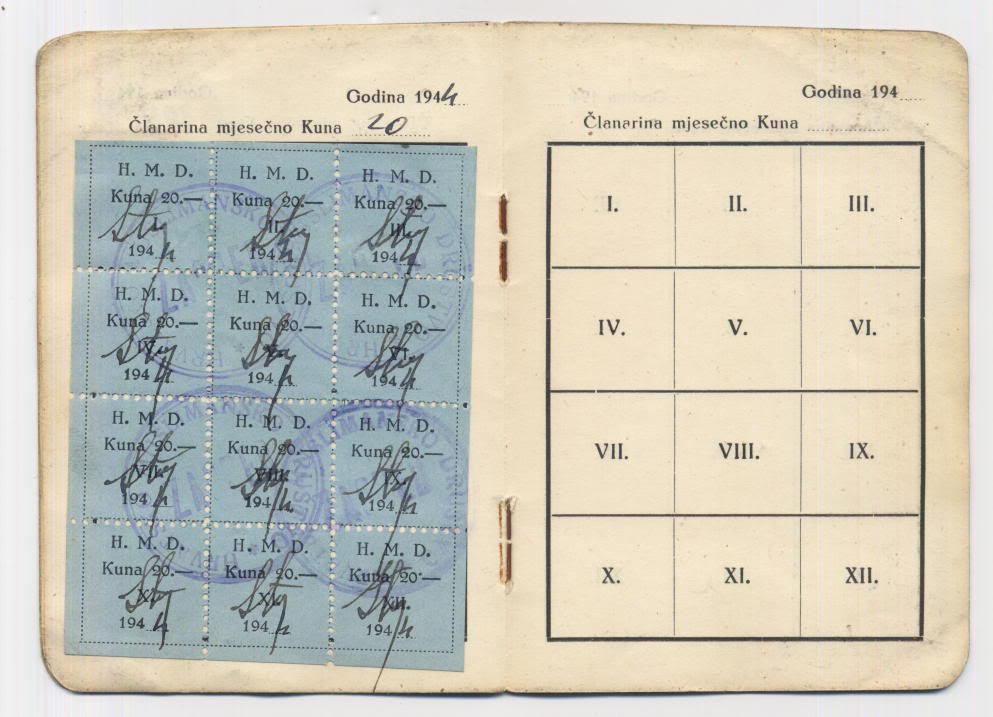 Godina 1944
Članarina mjesečno Kuna 20
H. M. D.
Kuna 20.—
I.
1944
H. M. D.
Kuna 20.—
II.
1944
H. M. D.
Kuna 20.—
III.
1944
H. M. D.
Kuna 20.—
IV.
1944
H. M. D.
Kuna 20.—
V.
1944
H. M. D.
Kuna 20.—
VI.
1944
H. M. D.
Kuna 20.—
VII.
1944
H. M. D.
Kuna 20.—
VIII.
1944
H. M. D.
Kuna 20.—
IX.
1944
H. M. D.
Kuna 20.—
X.
1944
H. M. D.
Kuna 20.—
XI.
1944
H. M. D.
Kuna 20.—
XII.
1944
Godina 194
Članarina mjesečno Kuna
I. II. III.
IV. V. VI.
VII. VIII. IX.
X. XI. XII.